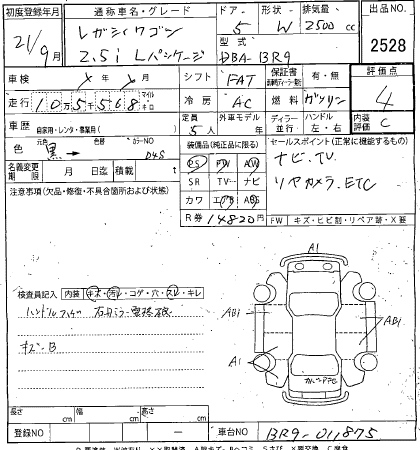 初度登録年月 通称車名・グレード ドア 形状 排気量 出品NO
21/9月 レガシィワゴン 2.5i Lパッケージ 5 W 2500cc 2528
型式 DBA-BR9
車検 月 シフト FAT 保証書 有・無 評価点 4
走行 105568 マイル キロ 冷房 AC 燃料 ガソリン
車歴 自家用・レンタ・事業用( ) 定員 5人 外車モデル ディーラー 並行 ハンドル 左・右 内装評価 C
色 元色 黒→ 色替 カラーNO D4S
装備品(純正品に限る) セールスポイント(正常に機能するもの)
PS PW AW ナビ、TV
名義変更期限 月 日迄 積載 t SR TV ナビ リヤカメラ、ETC
注意事項(欠品・修復・不具合箇所および状態) カワ エアB ABS
R券 14820円 FW キズ・ヒビ割・リペア跡・X要
A1
検査員記入 内装 キズ・汚レ・コゲ・穴・スレ・キレ
AB1 AB1
キズ-B
A1
長さ cm 幅 cm 高さ cm
登録NO ー 車台NO BR9-011875